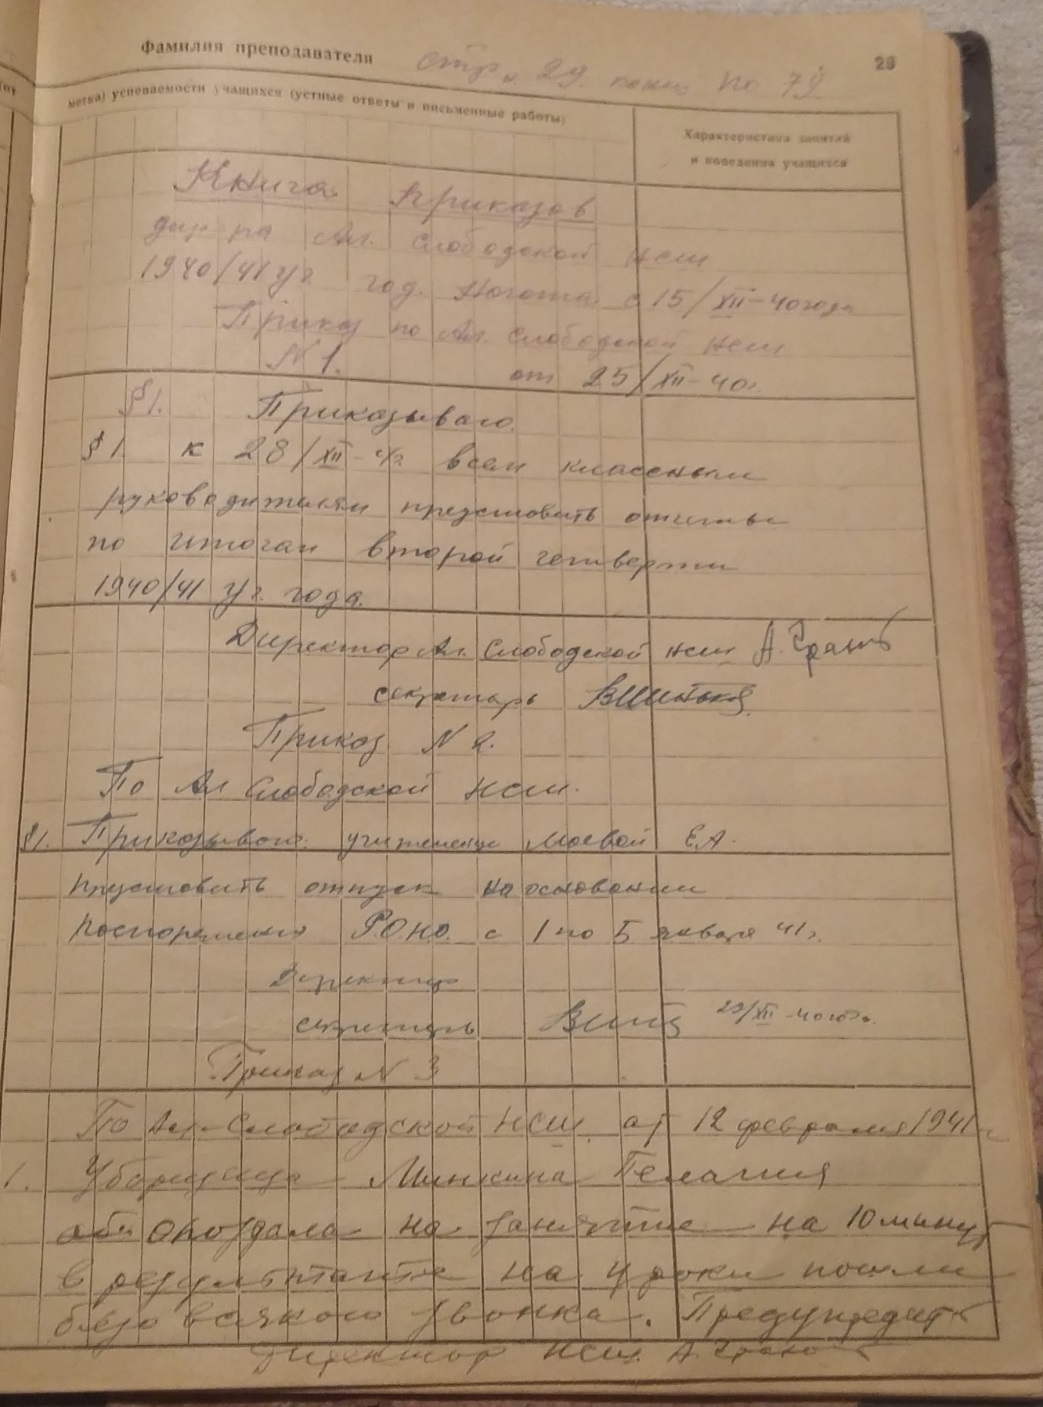 Фамилия преподавателя стр. 29. по 79
29
метка) успеваемости учащихся (устные ответы и письменные работы)
Характеристика занятий
и поведения учащихся
Книга приказов
дир-ра Ал. Слободской нсш
1940/41 уч. год. Начата с 15/XII-40 года
Приказ по Ал. Слободской нсш
N 1. от 25/XII-40г.
§1. Приказываю.
§1 к 28/XII всем классным
руководителям представить отчеты
по итогам второй четверти
1940/41 уч. года.
Директор Ал. Слободской нсш А.
секретарь
Приказ N 2.
По Ал Слободской нсш.
§1. Приказываю учительнице Е.А.
предоставить отпуск на основании
распоряжения РОНО. с 1 по 5 января 41г.
Директор
секретарь
Приказ N 3
По Ал-Слободской НСШ от 12 февраля 1941г
1. Уборщица Минкина Пелагия
опоздала на занятие на 10 минут
в результате на уроки пошли
безо всякого звонка. Предупредить
Директор НСШ. А.